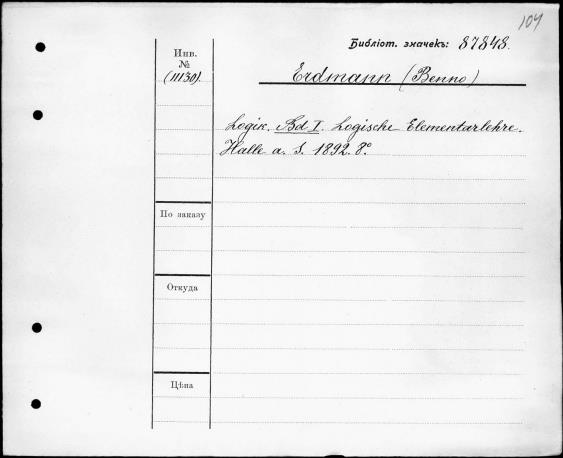 104
Библіот. значекъ: 87848.
Инв.
№
(11130).
Erdmann (Benno)
Logik. Bd I. Logische Elementarlehre.
Halle a. S. 1892. 8°
По заказу
Откуда
Цѣна